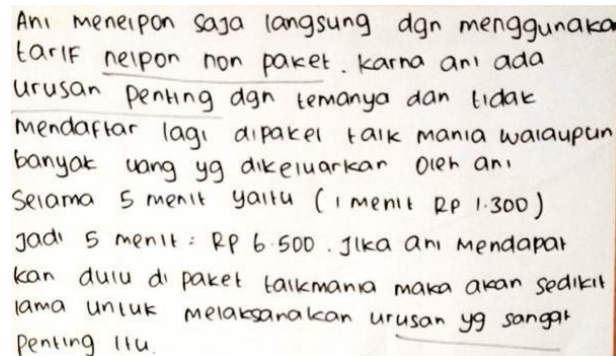 Ani menelpon saja langsung dgn menggunakan
tarif nelpon non paket. Karna ani ada
urusan penting dgn temanya dan tidak
mendaftar lagi dipaket talk mania walaupun
banyak uang yg dikeluarkan oleh ani
Selama 5 menit yaitu (1 menit RP 1.300)
Jadi 5 menit : RP 6.500. Jika ani mendapat
kan dulu di paket talkmania maka akan sedikit
lama untuk melaksanakan urusan yg sangat
penting itu.